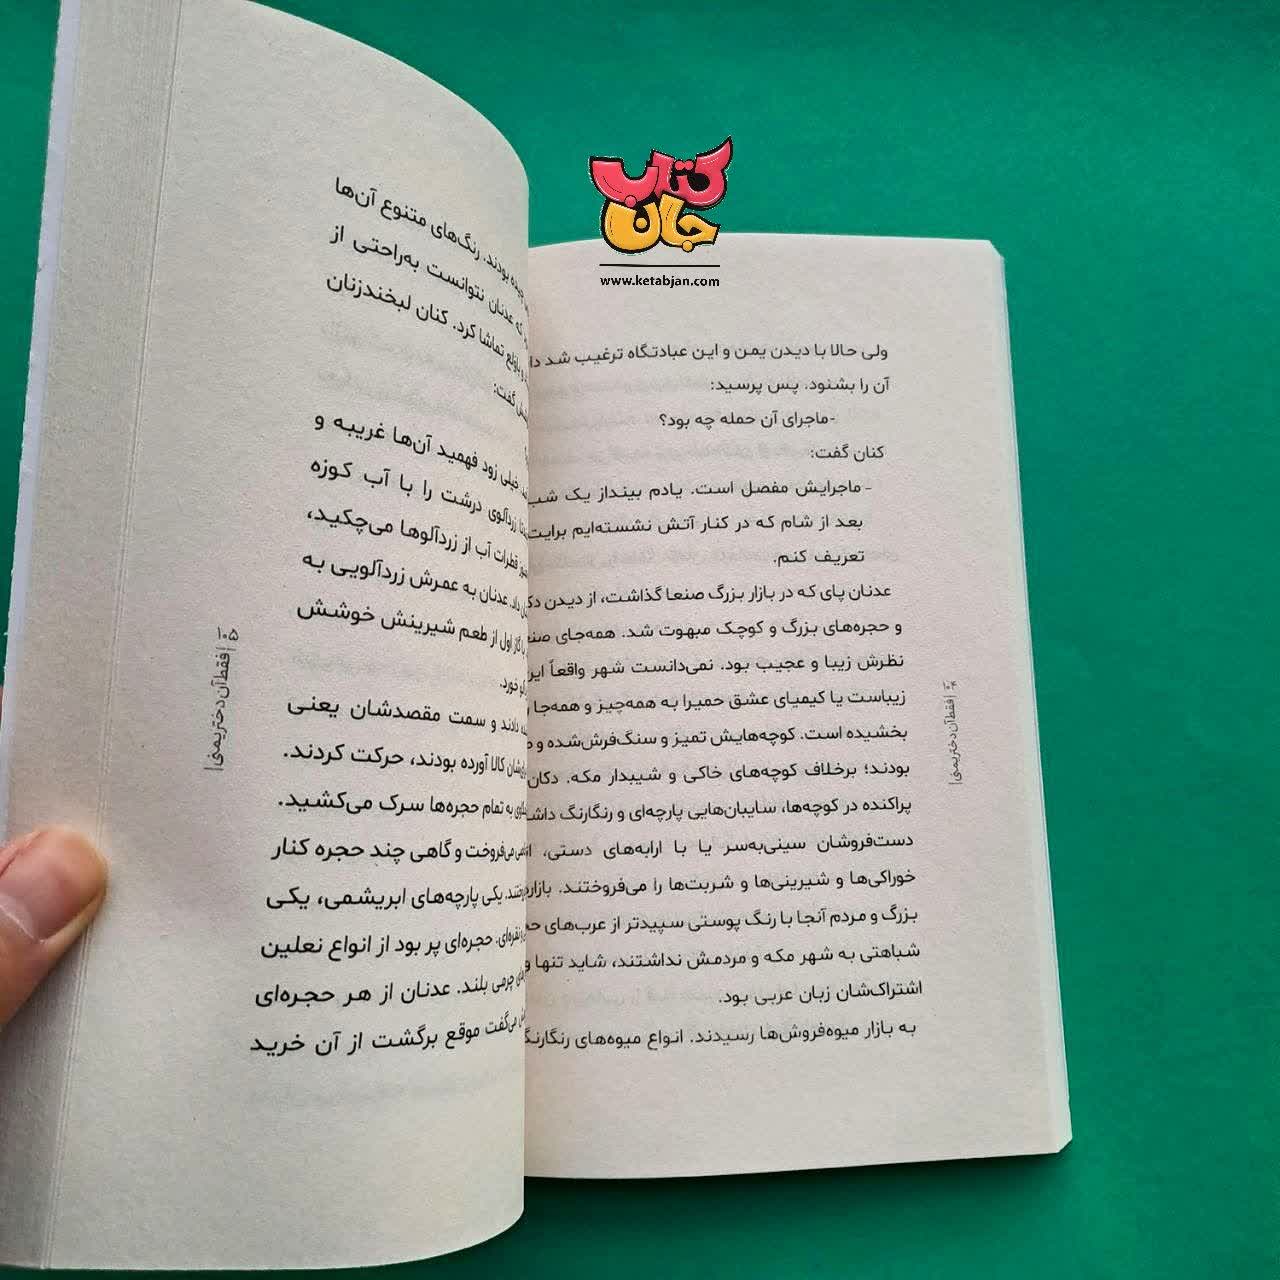 کتاب جان
www.ketabjan.com
ولی حالا با دیدن یمن و این عبادتگاه ترغیب شد
آن را بشنود. پس پرسید:
-ماجرای آن حمله چه بود؟
کنان گفت:
- ماجرایش مفصل است. یادم بینداز یک شب
بعد از شام که در کنار آتش نشسته‌ایم برایت
تعریف کنم.
عدنان پای که در بازار بزرگ صنعا گذاشت، از دیدن
و حجره‌های بزرگ و کوچک مبهوت شد. همه‌جای
نظرش زیبا و عجیب بود. نمی‌دانست شهر واقعاً
زیباست یا کیمیای عشق حمیرا به همه‌چیز و همه‌جا
بخشیده است. کوچه‌هایش تمیز و سنگ‌فرش‌شده و
بودند؛ برخلاف کوچه‌های خاکی و شیبدار مکه.
پراکنده در کوچه‌ها، سایبان‌هایی پارچه‌ای و رنگارنگ
دست‌فروشان سینی‌به‌سر یا با ارابه‌های دستی،
خوراکی‌ها و شیرینی‌ها و شربت‌ها را می‌فروختند.
بزرگ و مردم آنجا با رنگ پوستی سپیدتر از عرب‌های
شباهتی به شهر مکه و مردمش نداشتند، شاید تنها
اشتراک‌شان زبان عربی بود.
به بازار میوه‌فروش‌ها رسیدند. انواع میوه‌های
فقط آن دختر یمنی
بودند. رنگ‌های متنوع آن‌ها
که عدنان نتوانست به‌راحتی از
تماشا کرد. کنان لبخندزنان
گفت:
خیلی زود فهمید آن‌ها غریبه و
زردآلوی درشت را با آب کوزه
قطرات آب از زردآلوها می‌چکید،
داد. عدنان به عمرش زردآلویی به
گاز اول از طعم شیرینش خوشش
خورد.
دادند و سمت مقصدشان یعنی
کالا آورده بودند، حرکت کردند.
به تمام حجره‌ها سرک می‌کشید.
می‌فروخت و گاهی چند حجره کنار
یکی پارچه‌های ابریشمی، یکی
نقره‌ای. حجره‌ای پر بود از انواع نعلین
چرمی بلند. عدنان از هر حجره‌ای
می‌گفت موقع برگشت از آن خرید
۱۰۵
فقط آن دختر یمنی